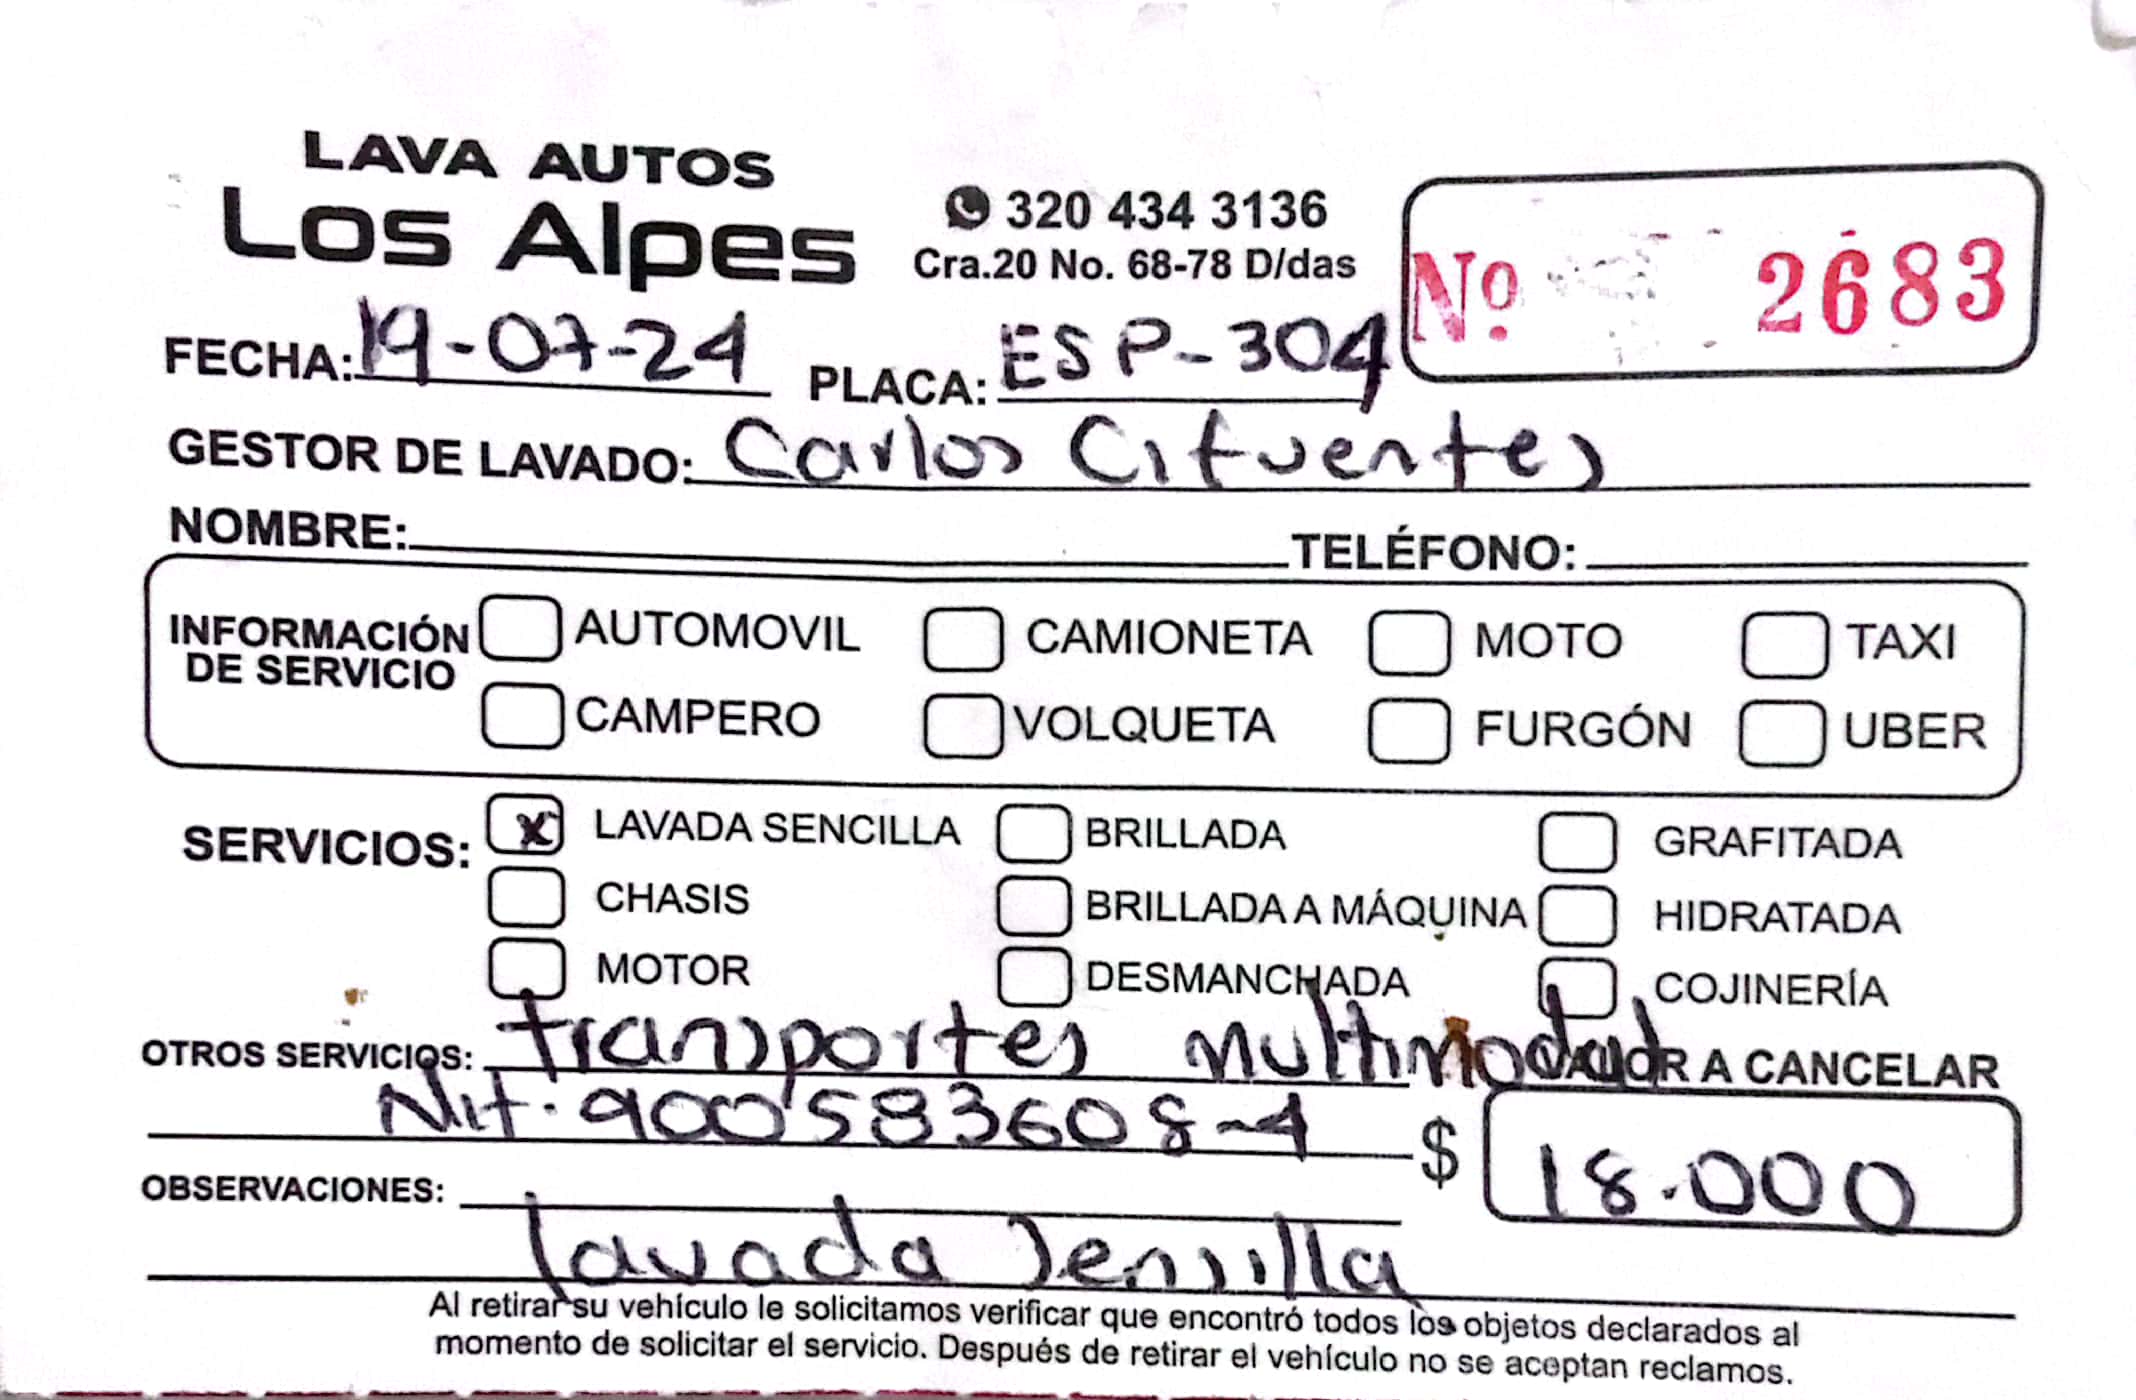 LAVA AUTOS
Los Alpes
320 434 3136
Cra.20 No. 68-78 D/das
Nº 2683
FECHA: 19-07-24 PLACA: ESP-304
GESTOR DE LAVADO: Carlos Cifuentes
NOMBRE: TELÉFONO:
INFORMACIÓN DE SERVICIO
AUTOMOVIL CAMIONETA MOTO TAXI
CAMPERO VOLQUETA FURGÓN UBER
SERVICIOS: X LAVADA SENCILLA BRILLADA GRAFITADA
CHASIS BRILLADA A MÁQUINA HIDRATADA
MOTOR DESMANCHADA COJINERÍA
OTROS SERVICIOS: transportes multimodal VALOR A CANCELAR
Nit. 900583608-4 $ 18.000
OBSERVACIONES:
lavada sensilla
Al retirar su vehículo le solicitamos verificar que encontró todos los objetos declarados al
momento de solicitar el servicio. Después de retirar el vehículo no se aceptan reclamos.